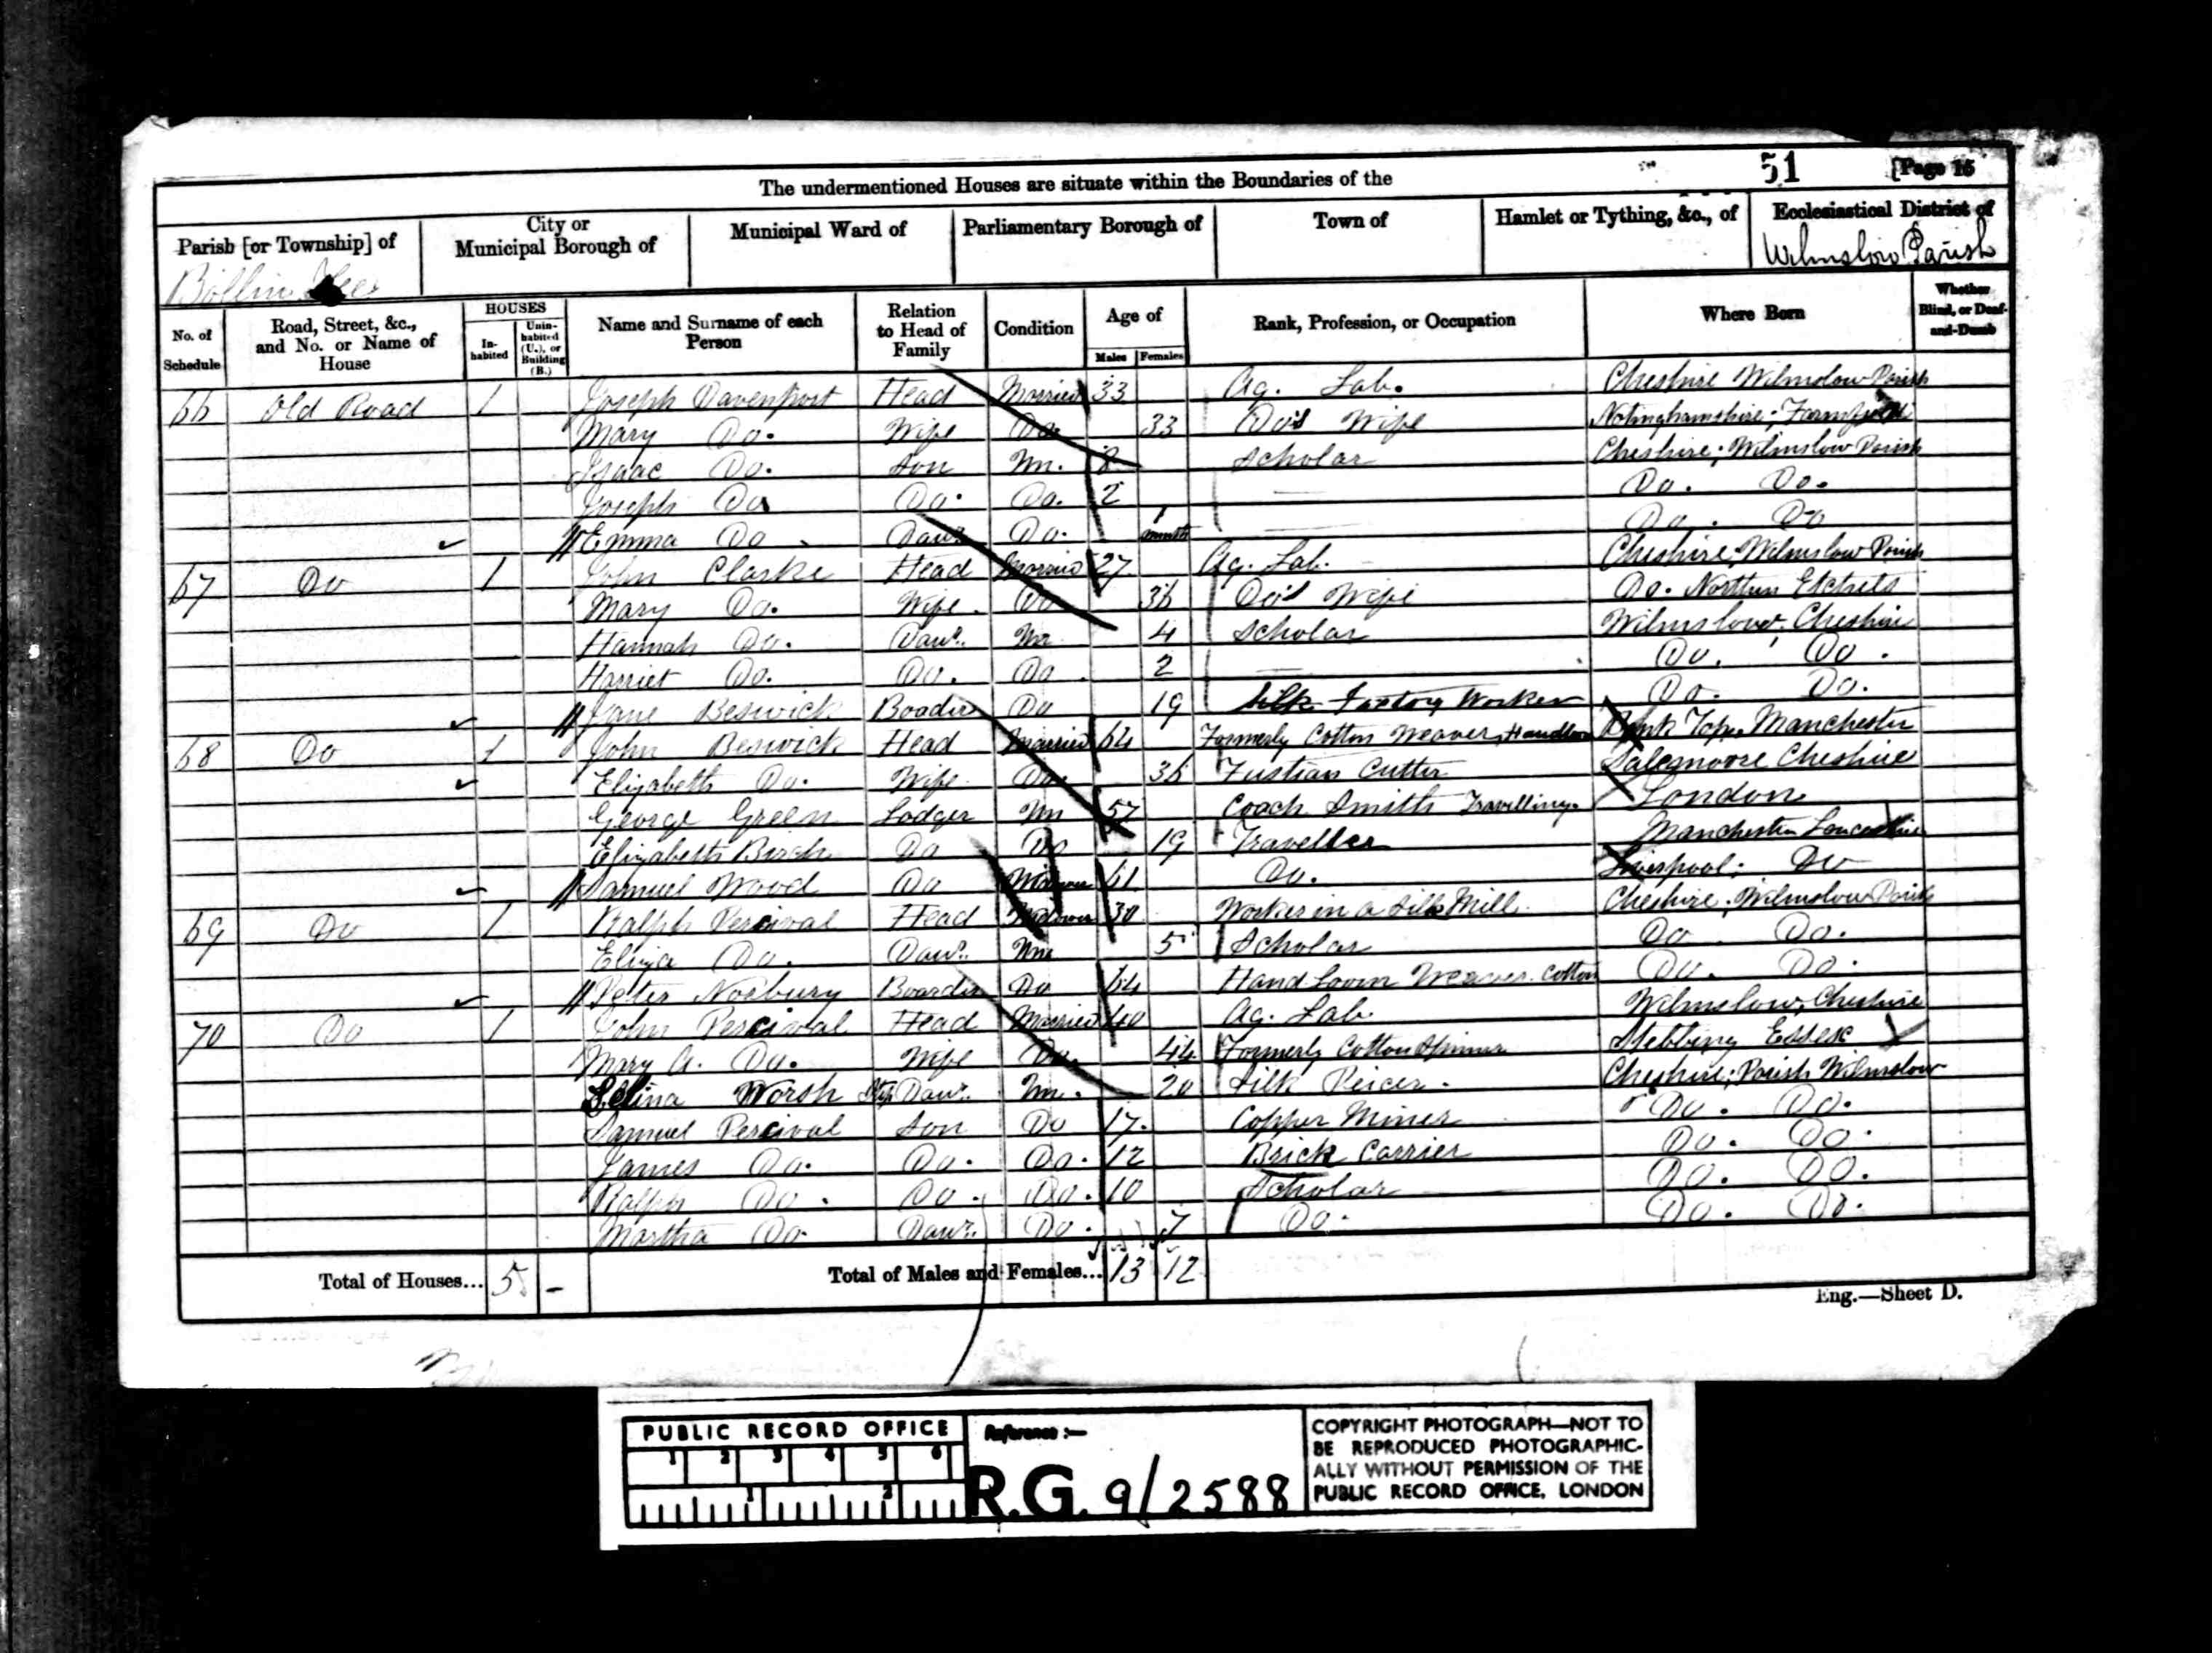 51 [Page 15
The undermentioned Houses are situate within the Boundaries of the
Parish [or Township] of
City or Municipal Borough of
Municipal Ward of
Parliamentary Borough of
Town of
Hamlet or Tything, &c., of
Ecclesiastical District of
Bollin Fee
Wilmslow Parish
No. of Schedule
Road, Street, &c., and No. or Name of House
HOUSES
In-habited
Unin-habited (U.), or Building (B.)
Name and Surname of each Person
Relation to Head of Family
Condition
Age of
Males
Females
Rank, Profession, or Occupation
Where Born
Whether Blind, or Deaf-and-Dumb
66 Old Road 1 Joseph Davenport Head Married 33 Ag. Lab. Cheshire Wilmslow Parish
Mary Do. Wife Do. 33 Do's Wife Notinghamshire;
Isaac Do. Son Un. 8 Scholar Cheshire; Wilmslow Parish
Joseph Do Do. Do. 2 — Do. Do.
Emma Do Daur. Do. 1 month — Do. Do
67 Do 1 John Clarke Head Married 27 Ag. Lab. Cheshire; Wilmslow Parish
Mary Do. Wife. Do 36 Do's Wife Do. Northen Etchels
Hannah Do. Daur. Un 4 Scholar Wilmslow, Cheshire
Harriet Do. Do. Do. 2 — Do. Do.
Jane Beswick Boader Do 19 Silk Factory Worker Do. Do.
68 Do 1 John Beswick Head Married 64 Formerly Cotton Weaver, Handloom Bank Top, Manchester
Elizabeth Do. Wife Do. 36 Fustian Cutter Salemoore Cheshire
George Green Lodger Un 57 Coach Smith Travelling. London
Elizabeth Birch Do Do 19 Traveller Manchester Lancashire
Samuel Wood Do Widower 61 Do. Liverpool; Do
69 Do 1 Ralph Percival Head Widower 30 Worker in a Silk Mill. Cheshire; Wilmslow Parish
Eliza Do. Daur. Un 5 Scholar Do Do.
Peter Norbury Boarder Do 64 Hand Loom Weaver. Cotton Do. Do.
70 Do 1 John Percival Head Married 40 Ag. Lab. Wilmslow, Cheshire
Mary A. Do. Wife Do. 44 Formerly Cotton Spinner Stebbing Essex
Selina Worsh Step Daur. Un. 20 Silk Peicer. Cheshire; Parish Wilmslow
Samuel Percival Son Do 17. Copper Miner Do. Do.
James Do. Do. Do. 12 Brick Carrier Do. Do.
Ralph Do. Do. Do. 10 Scholar Do. Do.
Martha Do. Daur. Do. 7 Do. Do. Do.
Total of Houses... 5 – Total of Males and Females... 13 12
Eng.—Sheet D.
PUBLIC RECORD OFFICE
1 2 3 4 5 6
1 2
Reference :—
R.G. 9/2588
COPYRIGHT PHOTOGRAPH—NOT TO
BE REPRODUCED PHOTOGRAPHIC-
ALLY WITHOUT PERMISSION OF THE
PUBLIC RECORD OFFICE, LONDON